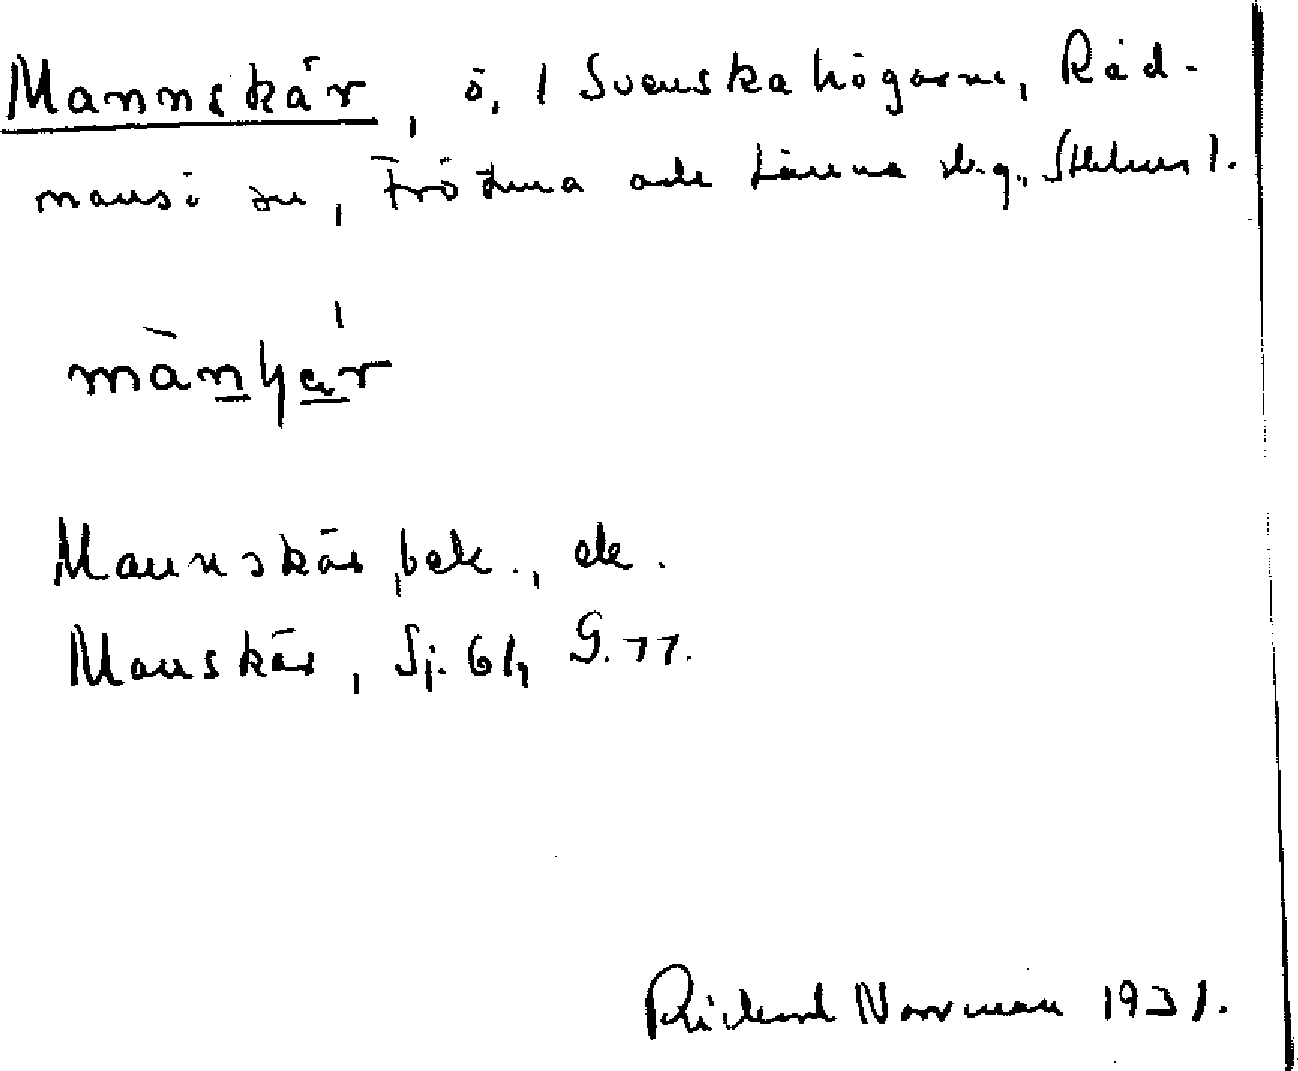 Mannskär, ö, i Svenska högarne, Råd-
mansö sn, Frötuna och Länna skg., Sthlms l.
mànʜ̱ạr
Mannskär, bek., ek.
Manskär, Sj. 61, G. 77.
Rickard Norrman 1931.